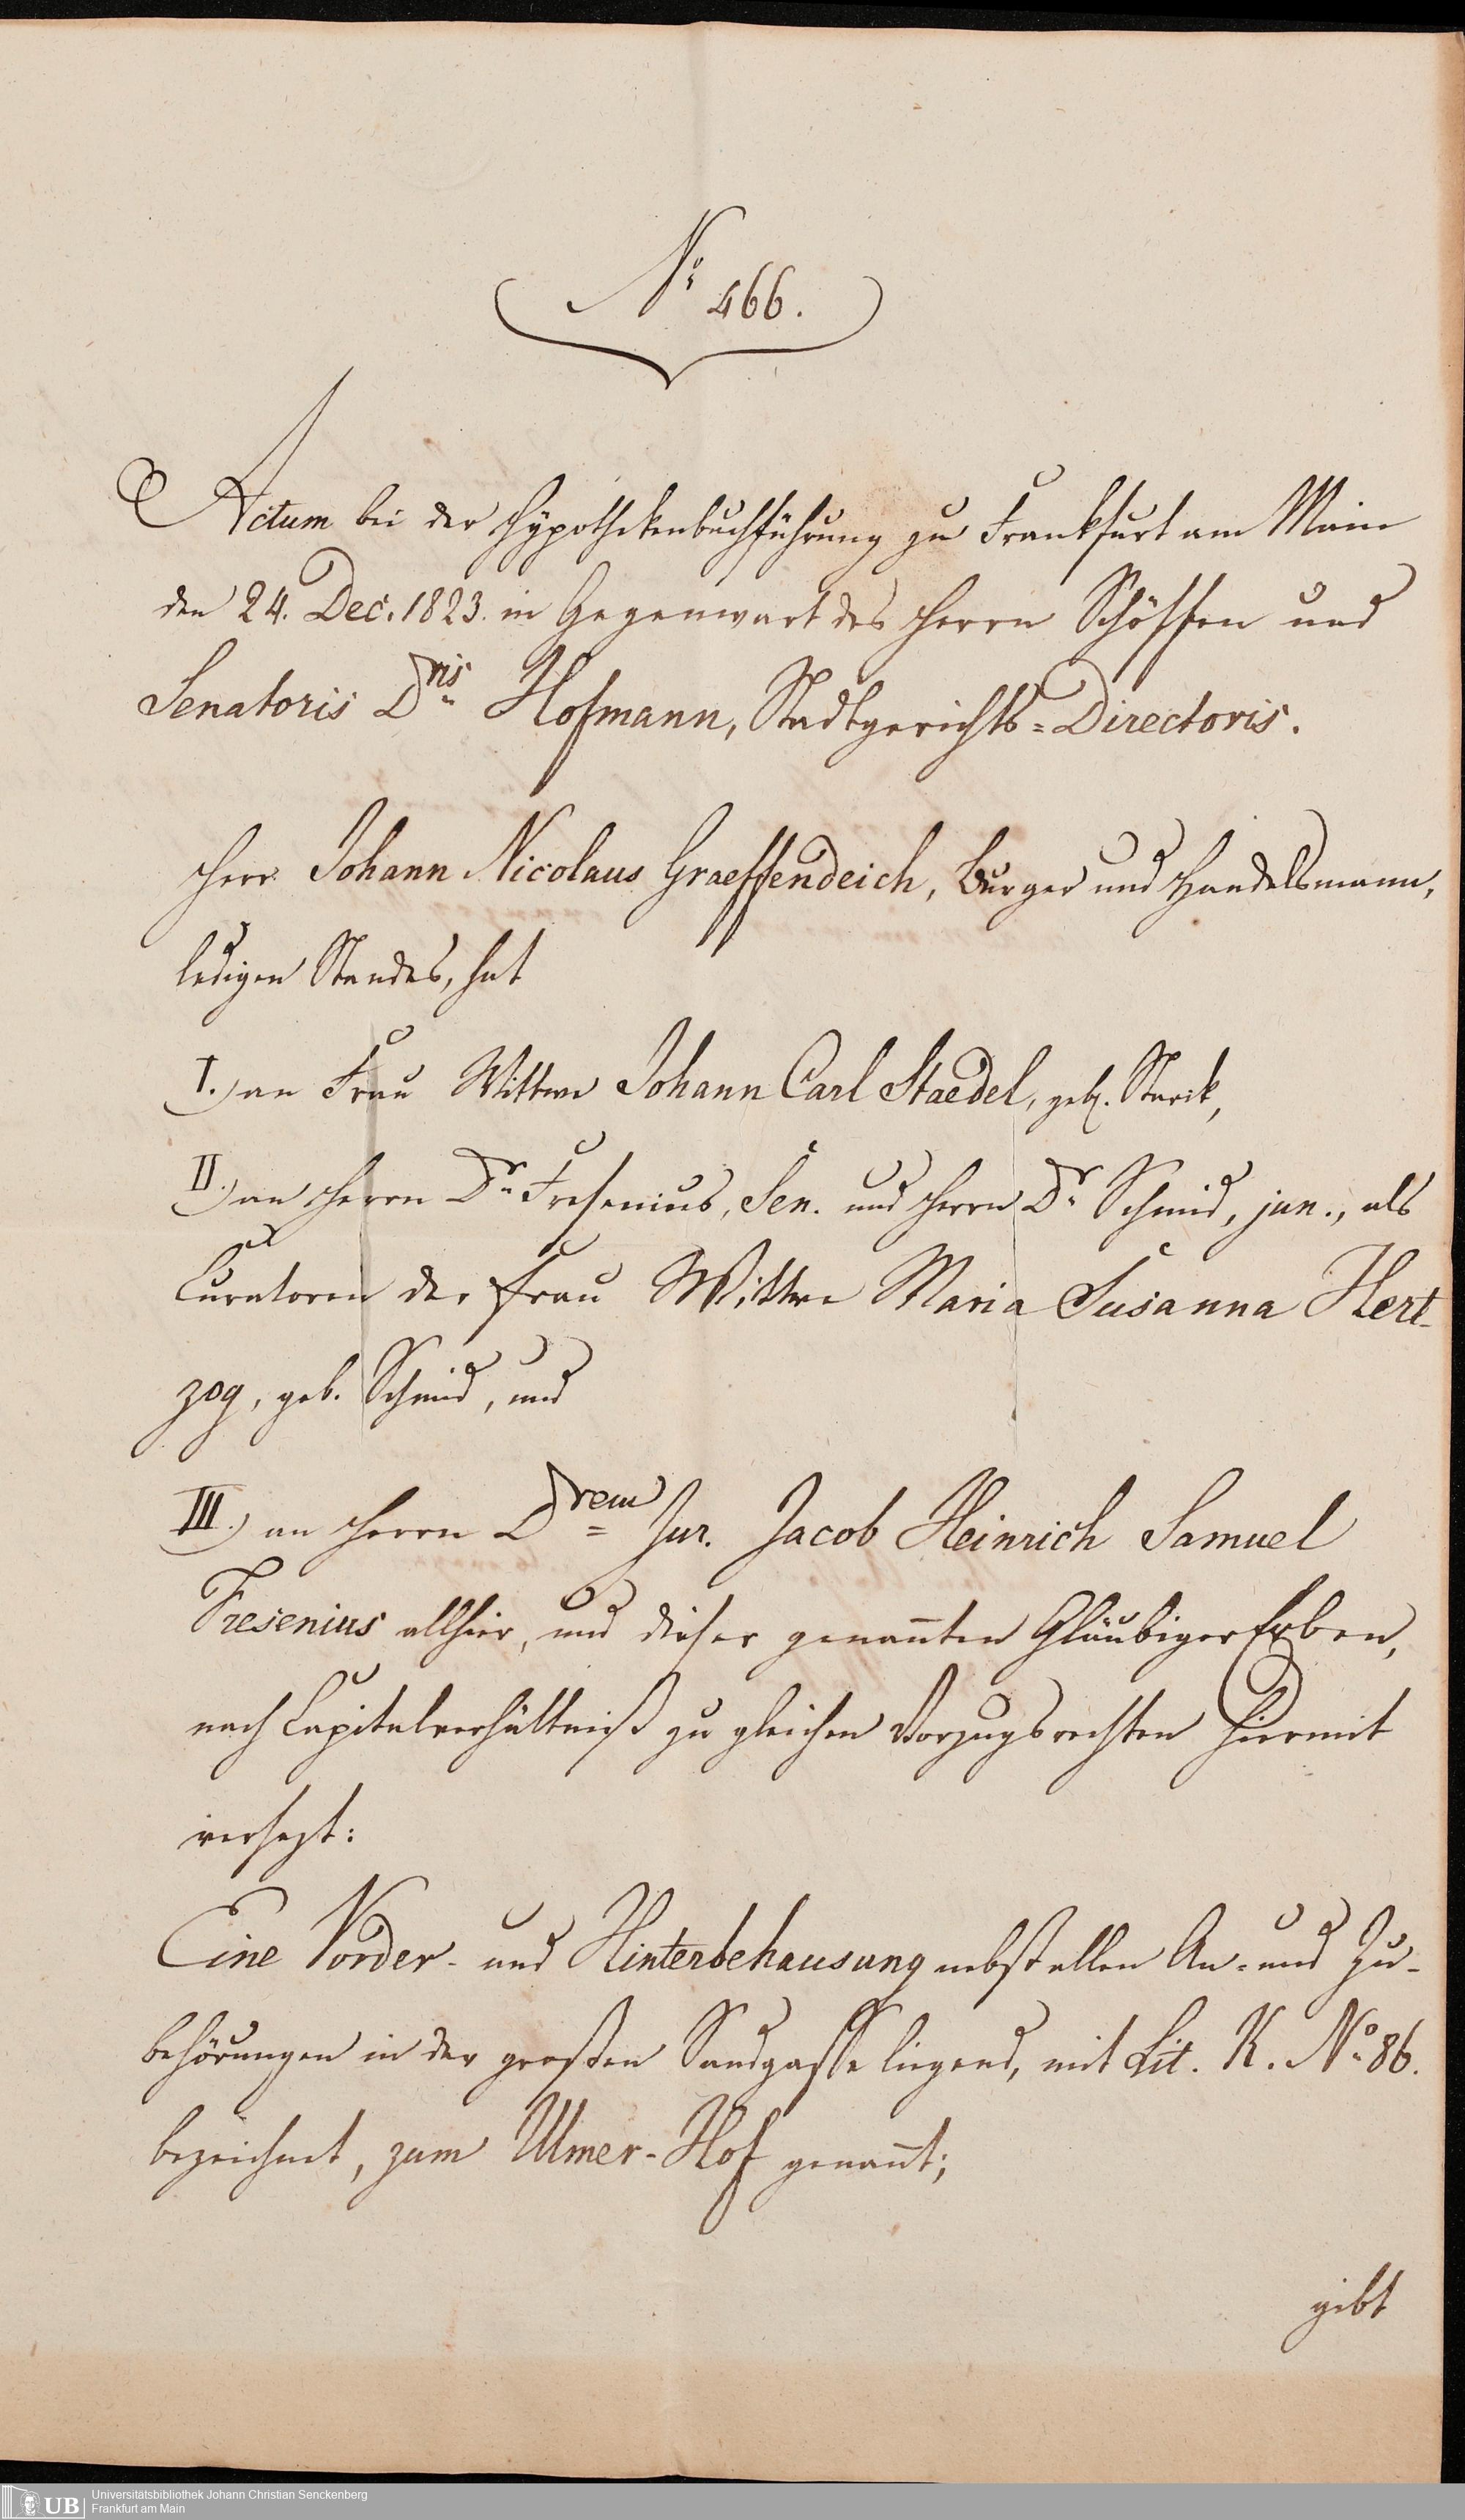 No 466.
Actum bei der Hÿpothekenbuchführung zu Frankfurt am Main
den 24. Dec. 1823. in Gegenwart des Herrn Schöffen und
Senatoris Dris Hofmann, Stadtgerichts=Directoris.
Herr Johann Nicolaus Graeffendeich, Burger und Handelsmann,
ledigen Standes, hat
I.) an Frau Wittwe Johann Carl Staedel, geb. Starck,
II.) an Herrn Dr Fresenius, Sen. und Herrn Dr Schmid, jun., als
Curatoren der Frau Wittwe Maria Susanna Hert-
zog, geb. Schmid, und
III.) an Herrn Drem Jur. Jacob Heinrich Samuel
Fresenius allhier, und dieser genan̄ten Gläubiger Erben,
nach Capitalverhältniß zu gleichen Vorzugsrechten hiermit
versezt:
Eine Vorder- und Hinterbehausung nebst allen An- und Zu-
behörungen in der großen Sandgasse liegend, mit Lit. K. No 86.
bezeichnet, zum Ulmer-Hof genan̄t;
gibt
UB
Universitätsbibliothek Johann Christian Senckenberg
Frankfurt am Main